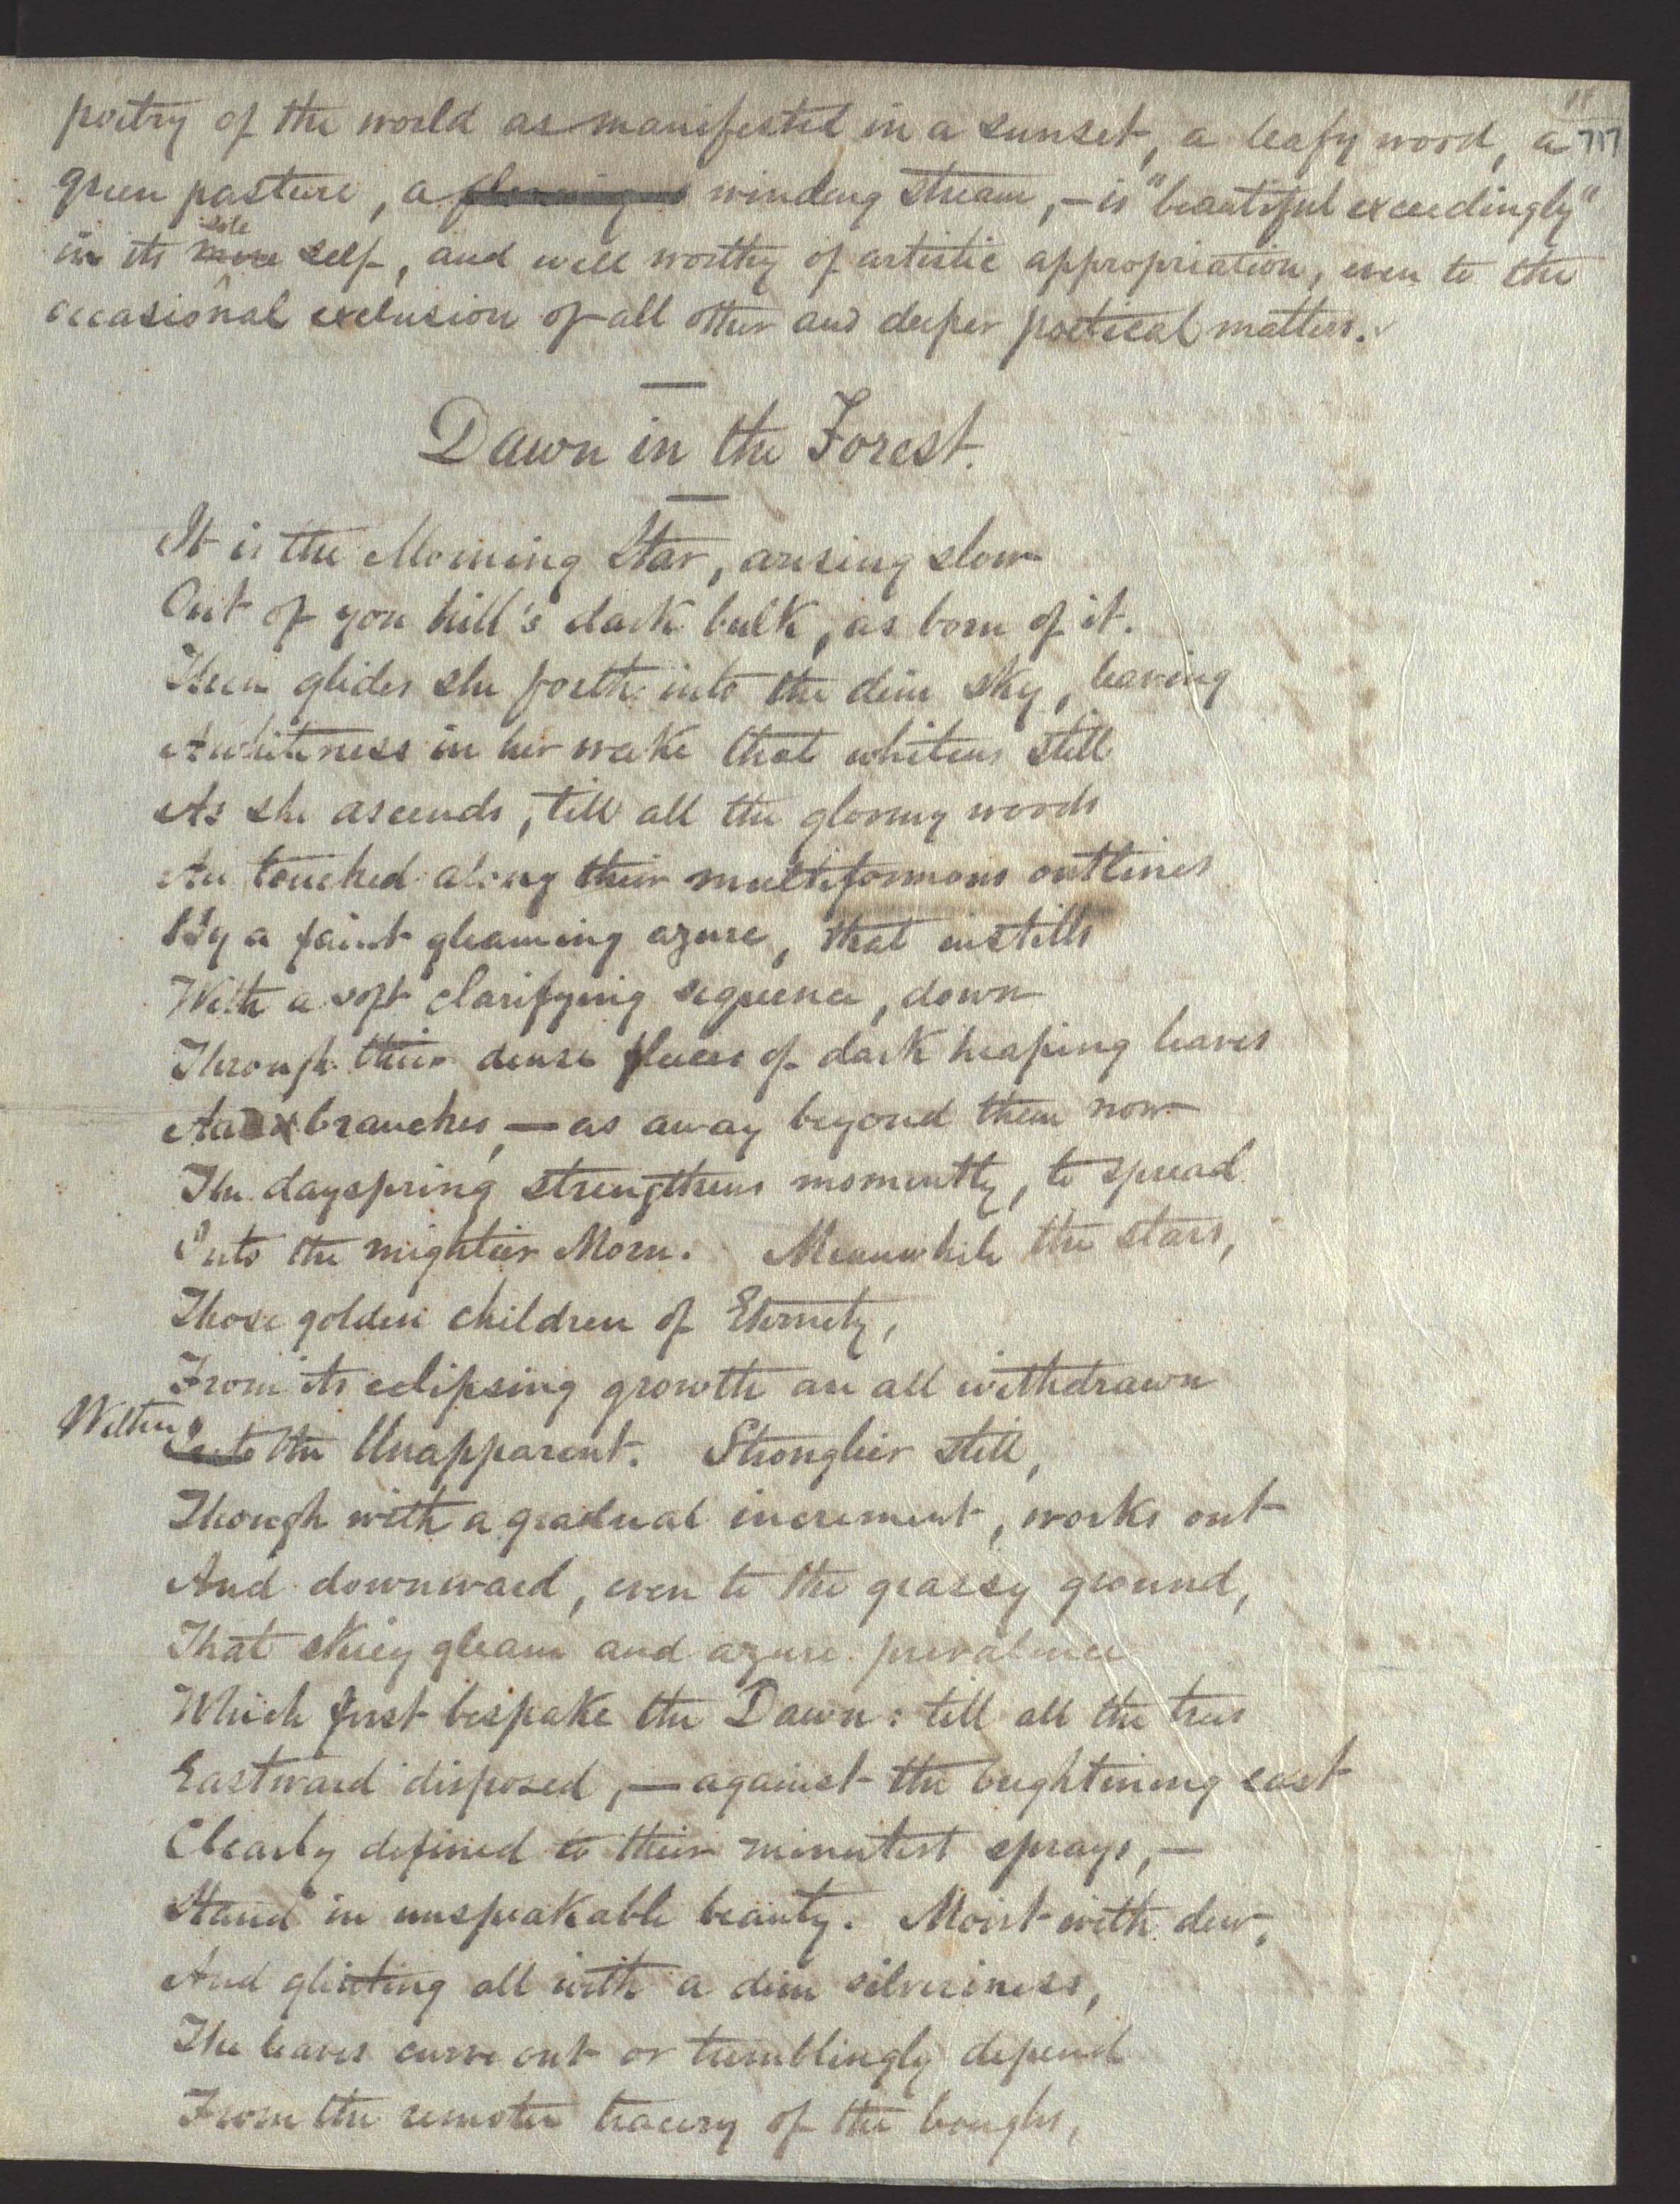 poetry of the world as manifested in a sunset, a leafy wood, a 717
green pasture, a winding stream, – is "beautiful exceedingly"
sole
in its mere self, and well worthy of artistic appropriation, even to the
occasional exclusion of all other and deeper poetical matters.
Dawn in the Forest.
It is the Morning Star, arising slow
Out of yon hill's dark bulk, as born of it.
Then glides she forth into the dim sky, leaving
A whiteness in her wake that whitens still
As she ascends, till all the gloomy woods
Are touched along their multiformous outlines
By a faint gleaming azure, that instills
With a soft clarifying sequence, down
Through their dense fleeces of dark heaping leaves
And branches, — as away beyond them now
The dayspring strengthens momently, to spread
Into the mightier Morn. Meanwhile the stars,
Those golden children of Eternity,
From its eclipsing growth are all withdrawn
Within
into the Unapparent. Stronglier still,
Though with a gradual increment, works out
And downward, even to the grassy ground,
That skiey gleam and azure prevalence
Which first bespake the Dawn: till all the trees
Eastward disposed, — against the brightening east
Clearly defined to their minutest sprays, —
Stand in unspeakable beauty. Moist with dew,
And glinting all with a dim silveriness,
The leaves curve out or tremblingly depend
From the remoter tracery of the boughs,